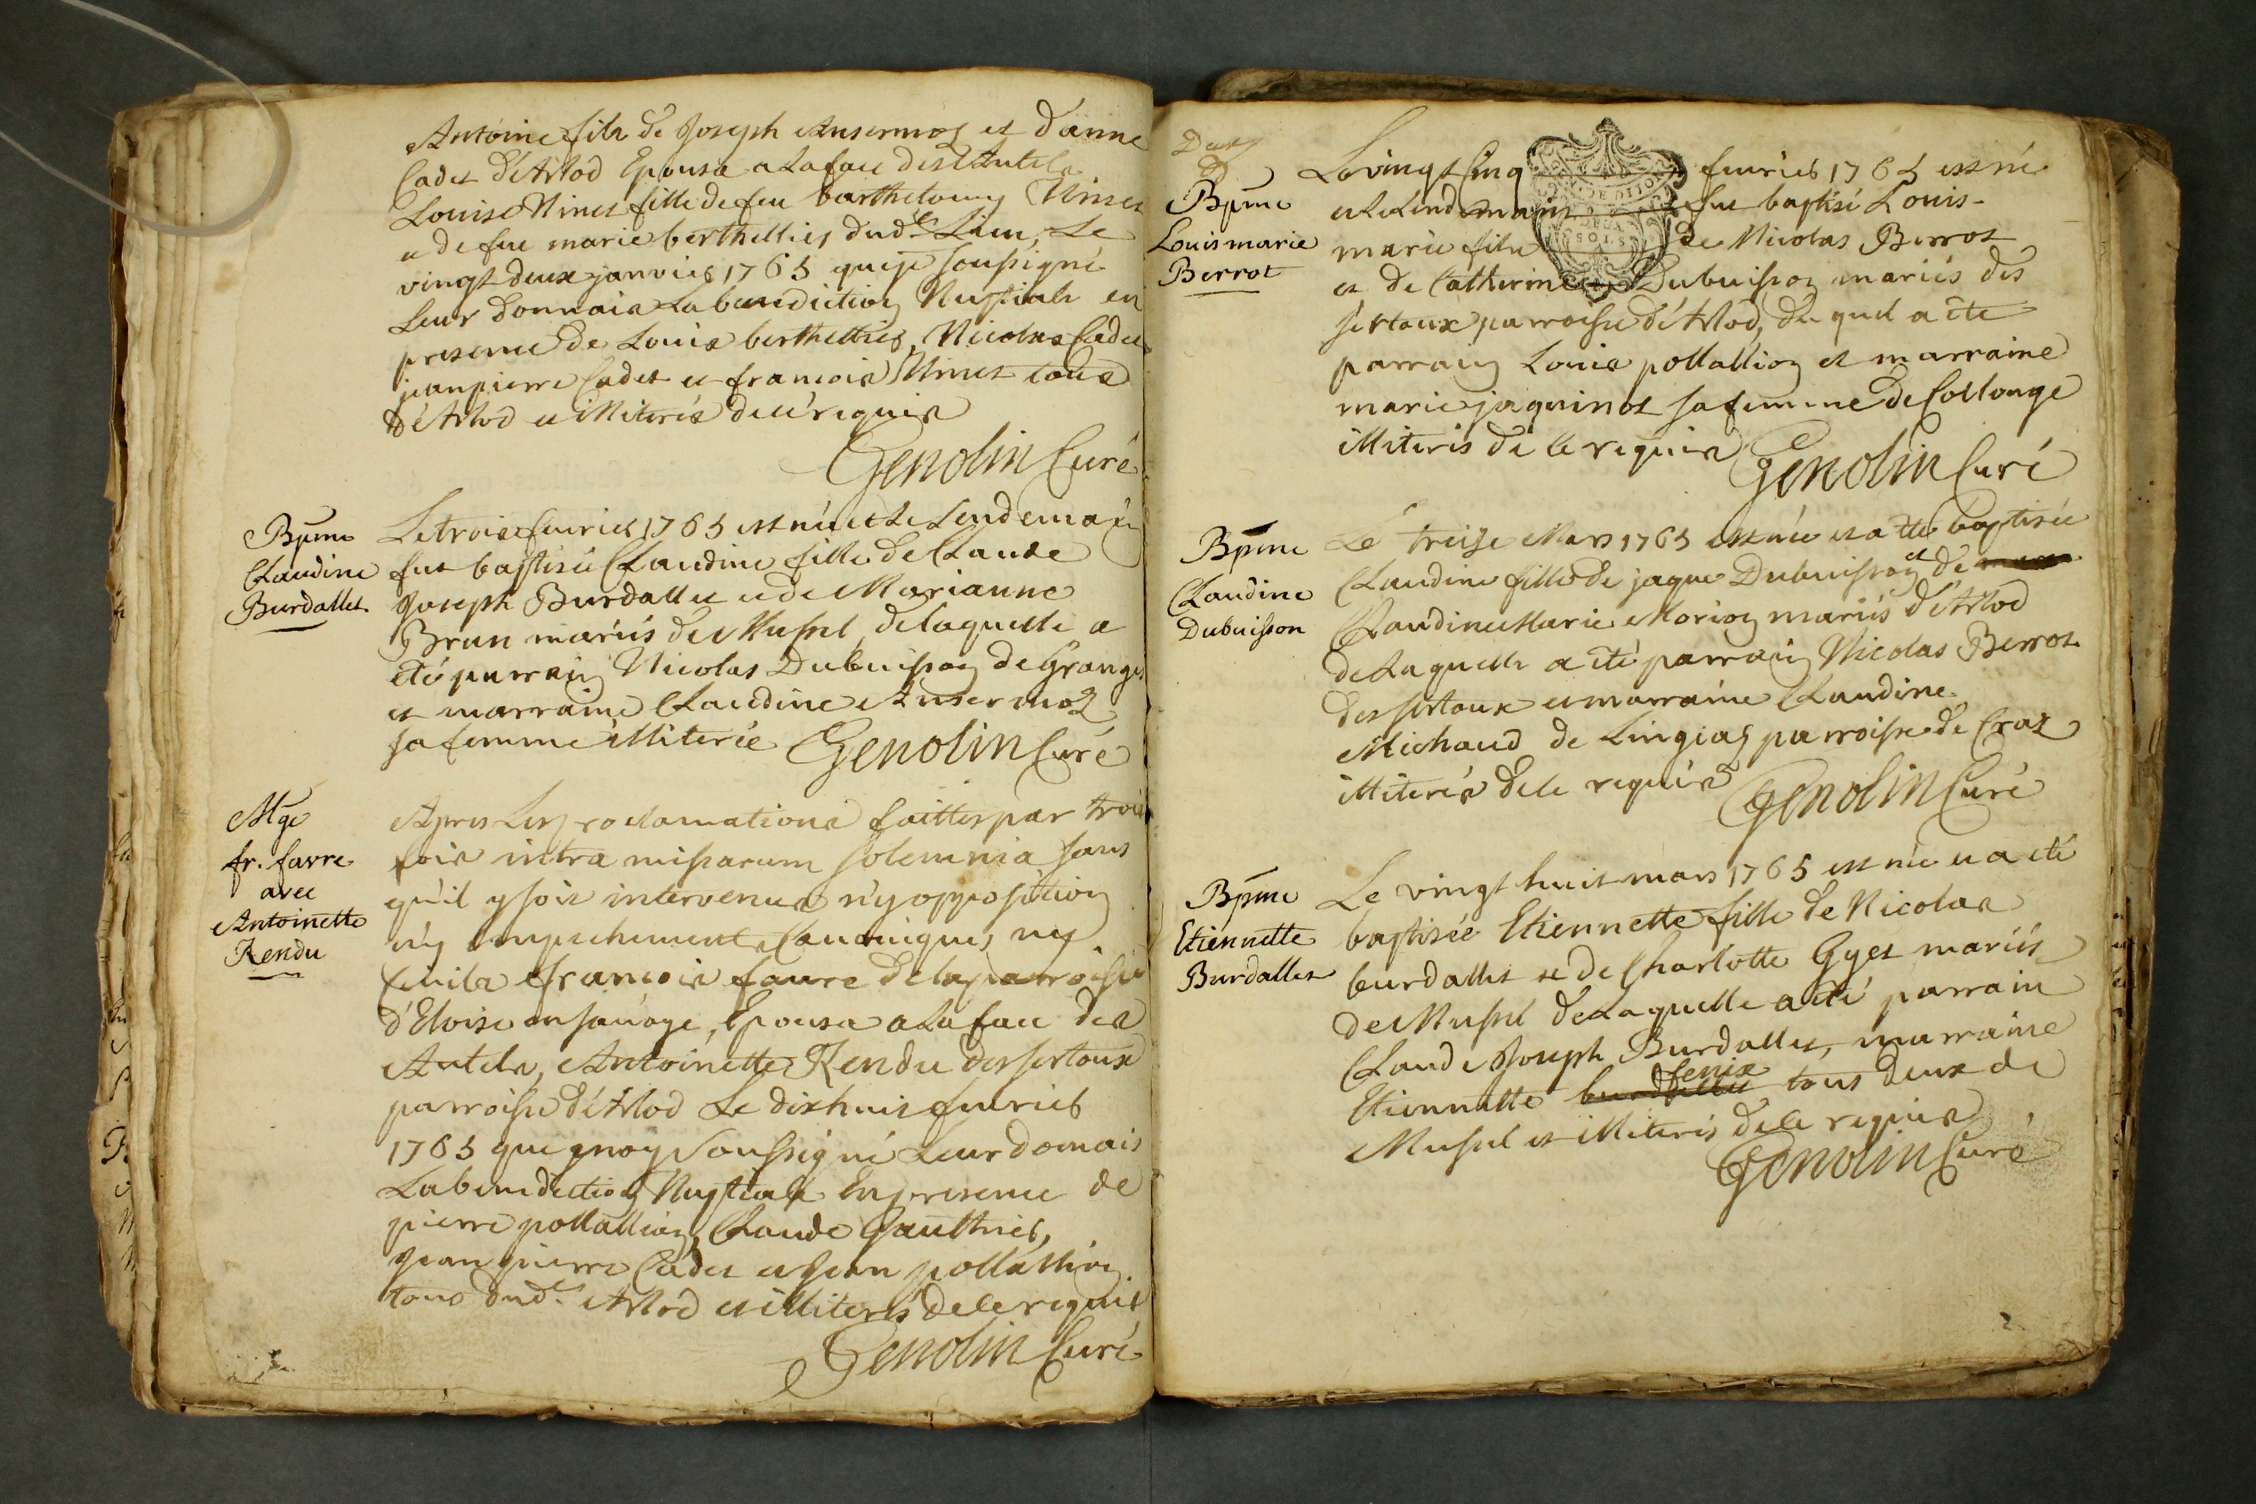 Antoine fils de Joseph Ansermoz et d'anne
Cadet d'Arlod Epousa a la face des Autels
Louise Ninet fille de feu barthelomy Ninet
et de fue marie berthellier dud.t Lieu, Le
vingt deux janvier 1765 que je soussigné
Leur donnais La benediction Nuptiale en
presence de Louis berthellier, Nicolas Cadet
jeanpierre Cadet et francois Ninet tous
d'Arlod et illiterés de ce requis
Genolin Curé
Bpme
Claudine
Burdallet
Le trois fevrier 1765 est née et Le Lendemain
fut baptisée Claudine fille de Claude
Joseph Burdallet et de Marianne
Brun mariés de Mussel de laquelle a
eté parrain Nicolas Dubuisson de Grange
et marraine Claudine Ansermoz
sa femme illiterée Genolin Curé
Mge
fr. favre
avec
Antoinette
Rendu
Apres Les proclamations faittes par trois
fois intra missarum solemnia sans
qu'il y soit intervenue n'y opposition
n'y empechement Canonique, ny
Civils francois favre de la parroisse
d'Eloise en savoye, Epousa a La face des
Autels, Antoinette Rendu des sertoux
parroisse d'Arlod Le dixhuit fevrier
1765 que moy Soussigné Leur donnais
La benediction Nuptiale En presence de
pierre pollallion, Claude Gauthier,
Jean pierre Cadet et Jean pollallion
tous dud.t Arlod et illiterés de ce requis
Genolin Curé
Bpme
Louis marie
Berrot
Le vingt Cinq fevrier 1765 est né
et Le Lendemain fut baptisé Louis-
marie fils de Nicolas Berrot
et de Catherine Dubuisson mariés des
sertoux parroisse d'Arlod, du quel a été
parrain Louis pollallion et marraine
marie jaquinot sa femme de Collonge
illiterés de ce requis Genolin Curé
Bpme
Claudine
Dubuisson
Le treize Mars 1765 est née et a été baptisée
Claudine fille de jaque Dubuisson et de
Claudine Marie Morion mariés d'Arlod
de Laquelle a été parrain Nicolas Berrot
des sertoux et marraine Claudine
Michaud de Lingiaz parroisse de Craz
illiterés de ce requis Genolin Curé
Bpme
Etiennette
Burdallet
Le vingt huit mars 1765 est née et a eté
baptisée Etiennette fille de Nicolas
burdallet et de Charlotte Gyet mariés
de Mussel de Laquelle a eté parrain
Claude Joseph Burdallet, marraine
Etiennette burdallet tous deux de
Mussel et illiterés de ce requis
Genolin Curé